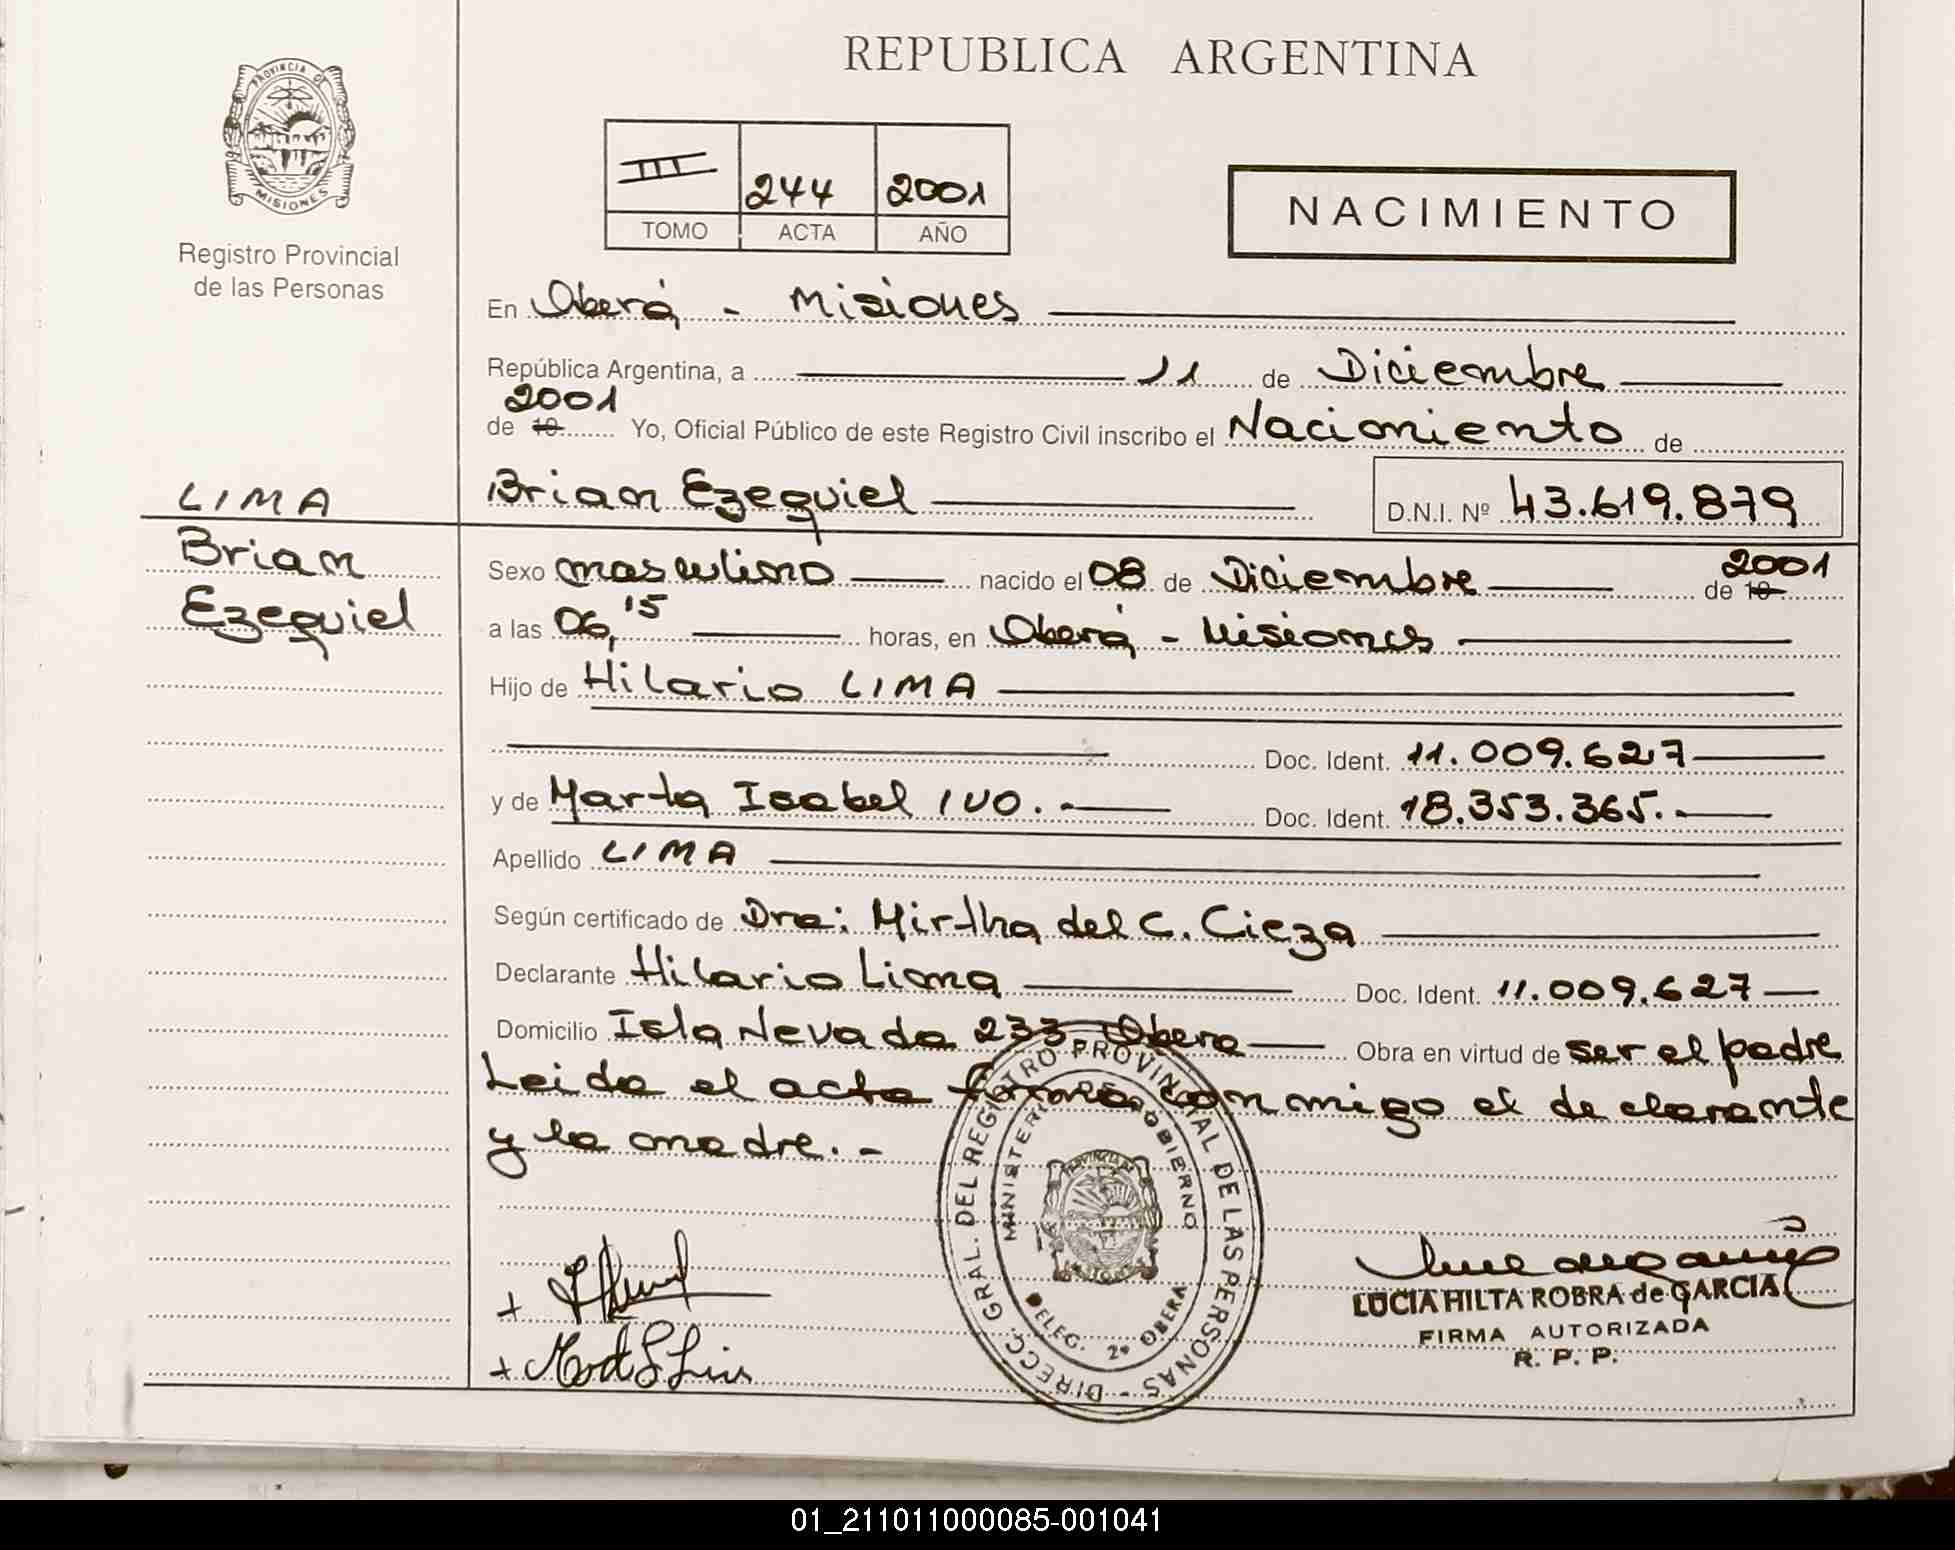 REPUBLICA ARGENTINA
PROVINCIA DE
MISIONES
Registro Provincial
de las Personas
III 244 2001
TOMO ACTA AÑO
NACIMIENTO
En Oberá - Misiones
República Argentina, a 11 de Diciembre
2001
de 19 Yo, Oficial Público de este Registro Civil inscribo el Nacimiento de
LIMA
Brian Ezequiel D.N.I. Nº 43.619.879
Brian
Ezequiel
Sexo masculino nacido el 08 de Diciembre de 19 2001
a las 06,15 horas, en Oberá - Misiones
Hijo de Hilario LIMA
Doc. Ident. 11.009.627
y de Marta Isabel IVO.- Doc. Ident. 18.353.365.-
Apellido LIMA
Según certificado de Dra: Mirtha del C. Cieza
Declarante Hilario Lima Doc. Ident. 11.009.627
Domicilio Isla Nevada 233 Obera Obra en virtud de ser el padre
Leida el acta firma con migo el declarante
y la madre.-
DIRECC. GRAL. DEL REGISTRO PROVINCIAL DE LAS PERSONAS -
MINISTERIO DE GOBIERNO
DELEG. 2º OBERA
LUCIA HILTA ROBRA de GARCIA
FIRMA AUTORIZADA
R. P. P.
01_211011000085-001041